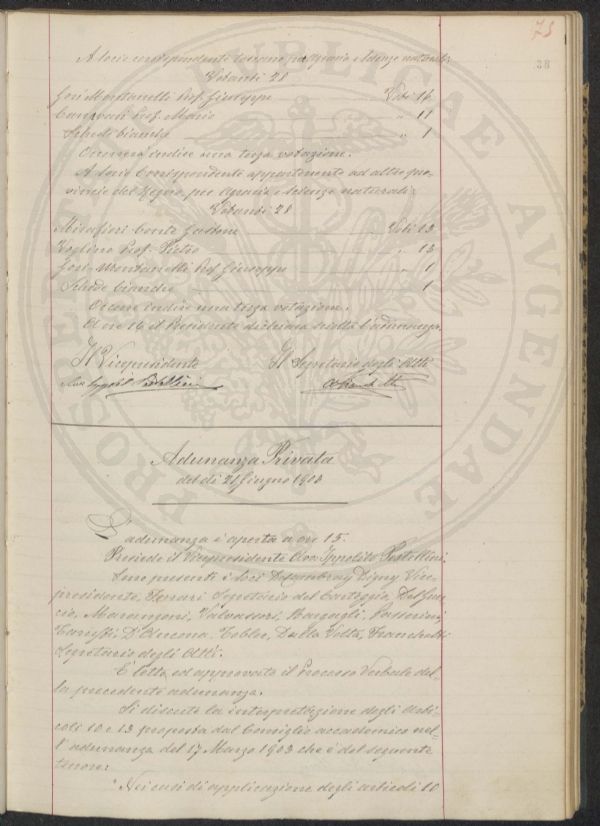 75
38
A Socio corrispondente toscano per Agraria e Scienze naturali:
Votanti 28
Gori Montanelli Prof. Giuseppe Voti 16
Canavari Prof. Mario " 11
Schede bianche " 1
Occorrerà indire una terza votazione.
A Socio Corrispondente appartenente ad altre pro-
vincie del Regno, per Agraria e Scienze naturali:
Votanti 28
Mirafiori Conte Gastone Voti 13
Voglino Prof. Pietro " 13
Gori-Montanelli Prof. Giuseppe " 1
Schede bianche 1
Occorre indire una terza votazione.
A ore 16 il Presidente dichiara sciolta l'adunanza.
Il Vicepresidente Il Segretario degli Atti
Adunanza Privata
del dì 21 Giugno 1903
L'adunanza è aperta a ore 15.
Presiede il Vicepresidente Avv. Ippolito Pestellini.
Sono presenti i Soci Decambray Digny Vice-
presidente, Ferrari Segretario del Carteggio, Del
Marangoni, Valvassori, Bargagli, Passerini,
D'Ancona, Tobler, Della Volta, Franceschi
Segretario degli Atti.
È letto ed approvato il Processo Verbale del-
la precedente adunanza.
Si discute la interpretazione degli Arti-
coli 10 e 13 proposta dal Consiglio accademico nel-
l'adunanza del 17 Marzo 1903 che è del seguente
tenore:
"Nei casi di applicazione degli articoli 10
PROSPERITATI PUBLICAE AVGENDAE